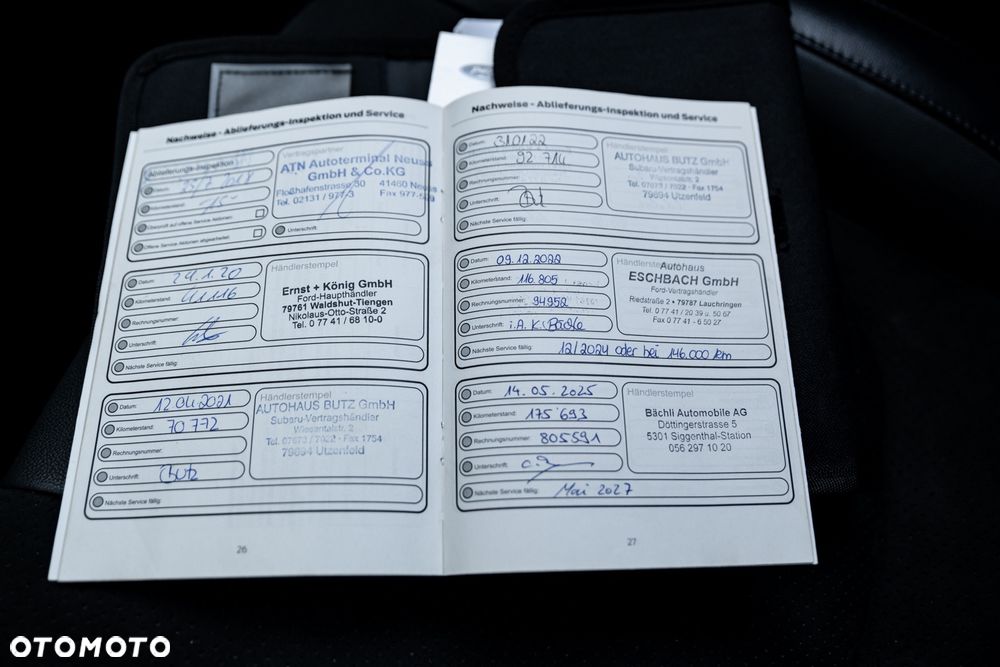 Nachweise - Ablieferungs-Inspektion und Service
Ablieferungs-Inspektion
Datum:
Kilometerstand:
Überprüft auf offene Service Aktionen:
Offene Service Aktionen abgearbeitet:
Vertragspartner
ATN Autoterminal Neuss
GmbH & Co.KG
Floßhafenstrasse 30 41460 Neuss
Tel. 02131 / 977-3 Fax 977-529
Unterschrift:
Datum: 24.1.20
Kilometerstand: 41116
Rechnungsnummer:
Unterschrift:
Nächste Service fällig:
Händlerstempel
Ernst + König GmbH
Ford-Haupthändler
79761 Waldshut-Tiengen
Nikolaus-Otto-Straße 2
Tel. 0 77 41 / 68 10-0
Datum: 12.04.2021
Kilometerstand: 70 772
Rechnungsnummer:
Unterschrift: Butz
Nächste Service fällig:
Händlerstempel
AUTOHAUS BUTZ GmbH
Subaru-Vertragshändler
Wiesentalstr. 2
Tel. 07673 / 7022 - Fax 1754
79694 Utzenfeld
26
Nachweise - Ablieferungs-Inspektion und Service
Datum: 310122
Kilometerstand: 92 714
Rechnungsnummer:
Unterschrift:
Nächste Service fällig:
Händlerstempel
AUTOHAUS BUTZ GmbH
Subaru-Vertragshändler
Wiesentalstr. 2
Tel. 07673 / 7022 - Fax 1754
79694 Utzenfeld
Datum: 09.12.2022
Kilometerstand: 116.805
Rechnungsnummer: 94952
Unterschrift: i.A. K. Bächle
Nächste Service fällig: 12/2024 oder bei 146.000 km
Händlerstempel
Autohaus
ESCHBACH GmbH
Ford-Vertragshändler
Riedstraße 2 • 79787 Lauchringen
Tel. 0 77 41 / 20 39 u. 50 67
Fax 0 77 41 - 6 50 27
Datum: 14.05.2025
Kilometerstand: 175'693
Rechnungsnummer: 805591
Unterschrift:
Nächste Service fällig: Mai 2027
Händlerstempel
Bächli Automobile AG
Döttingerstrasse 5
5301 Siggenthal-Station
056 297 10 20
27
OTOMOTO